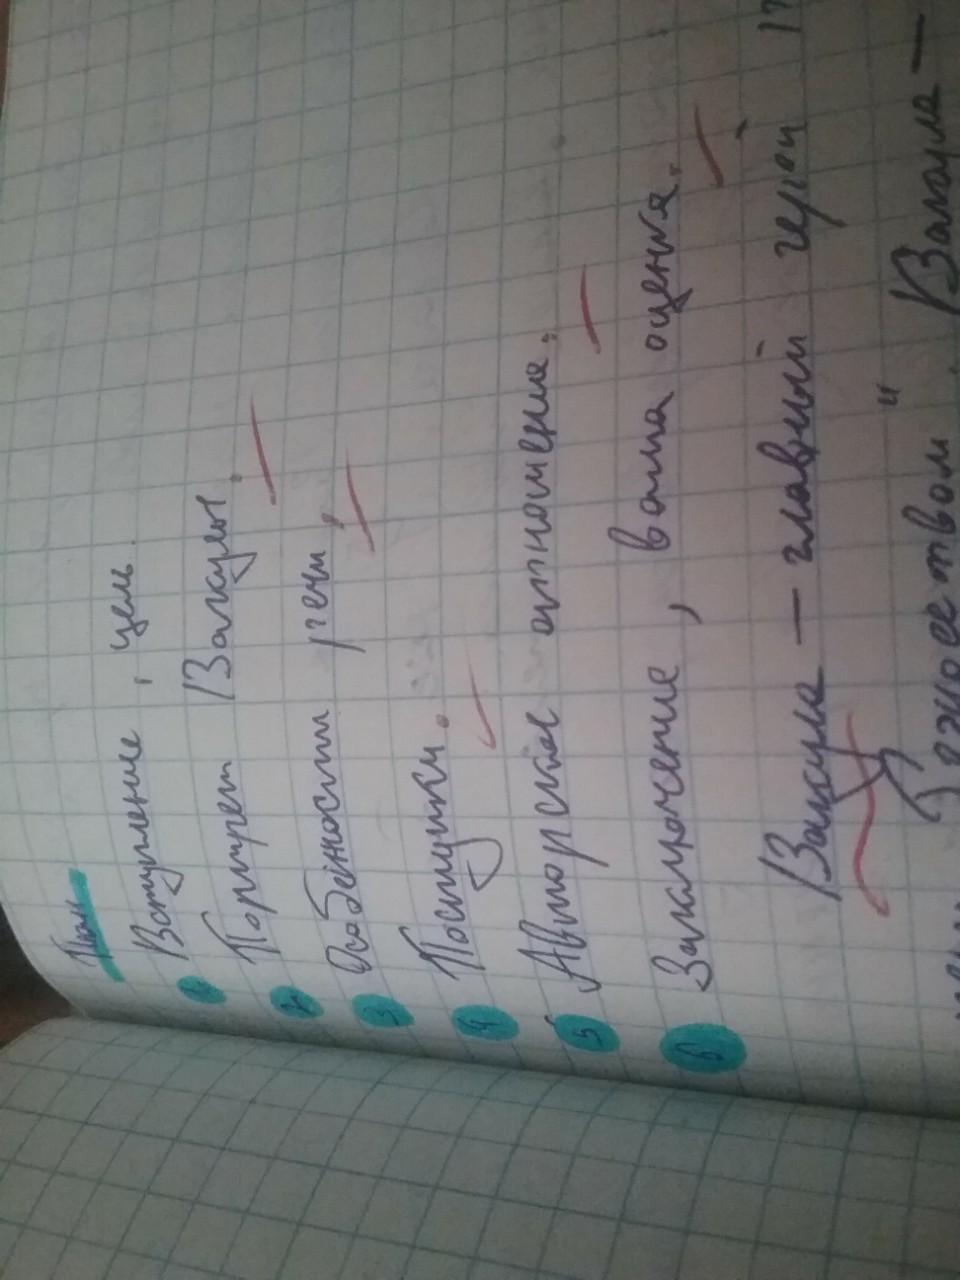 План
1 Вступление, цель.
2 Портрет Вакулы.
3 Особенности речи.
4 Поступки.
5 Авторское отношение.
6 Заключение, ваша оценка.
Вакула — главный герой
жеством". Вакула —